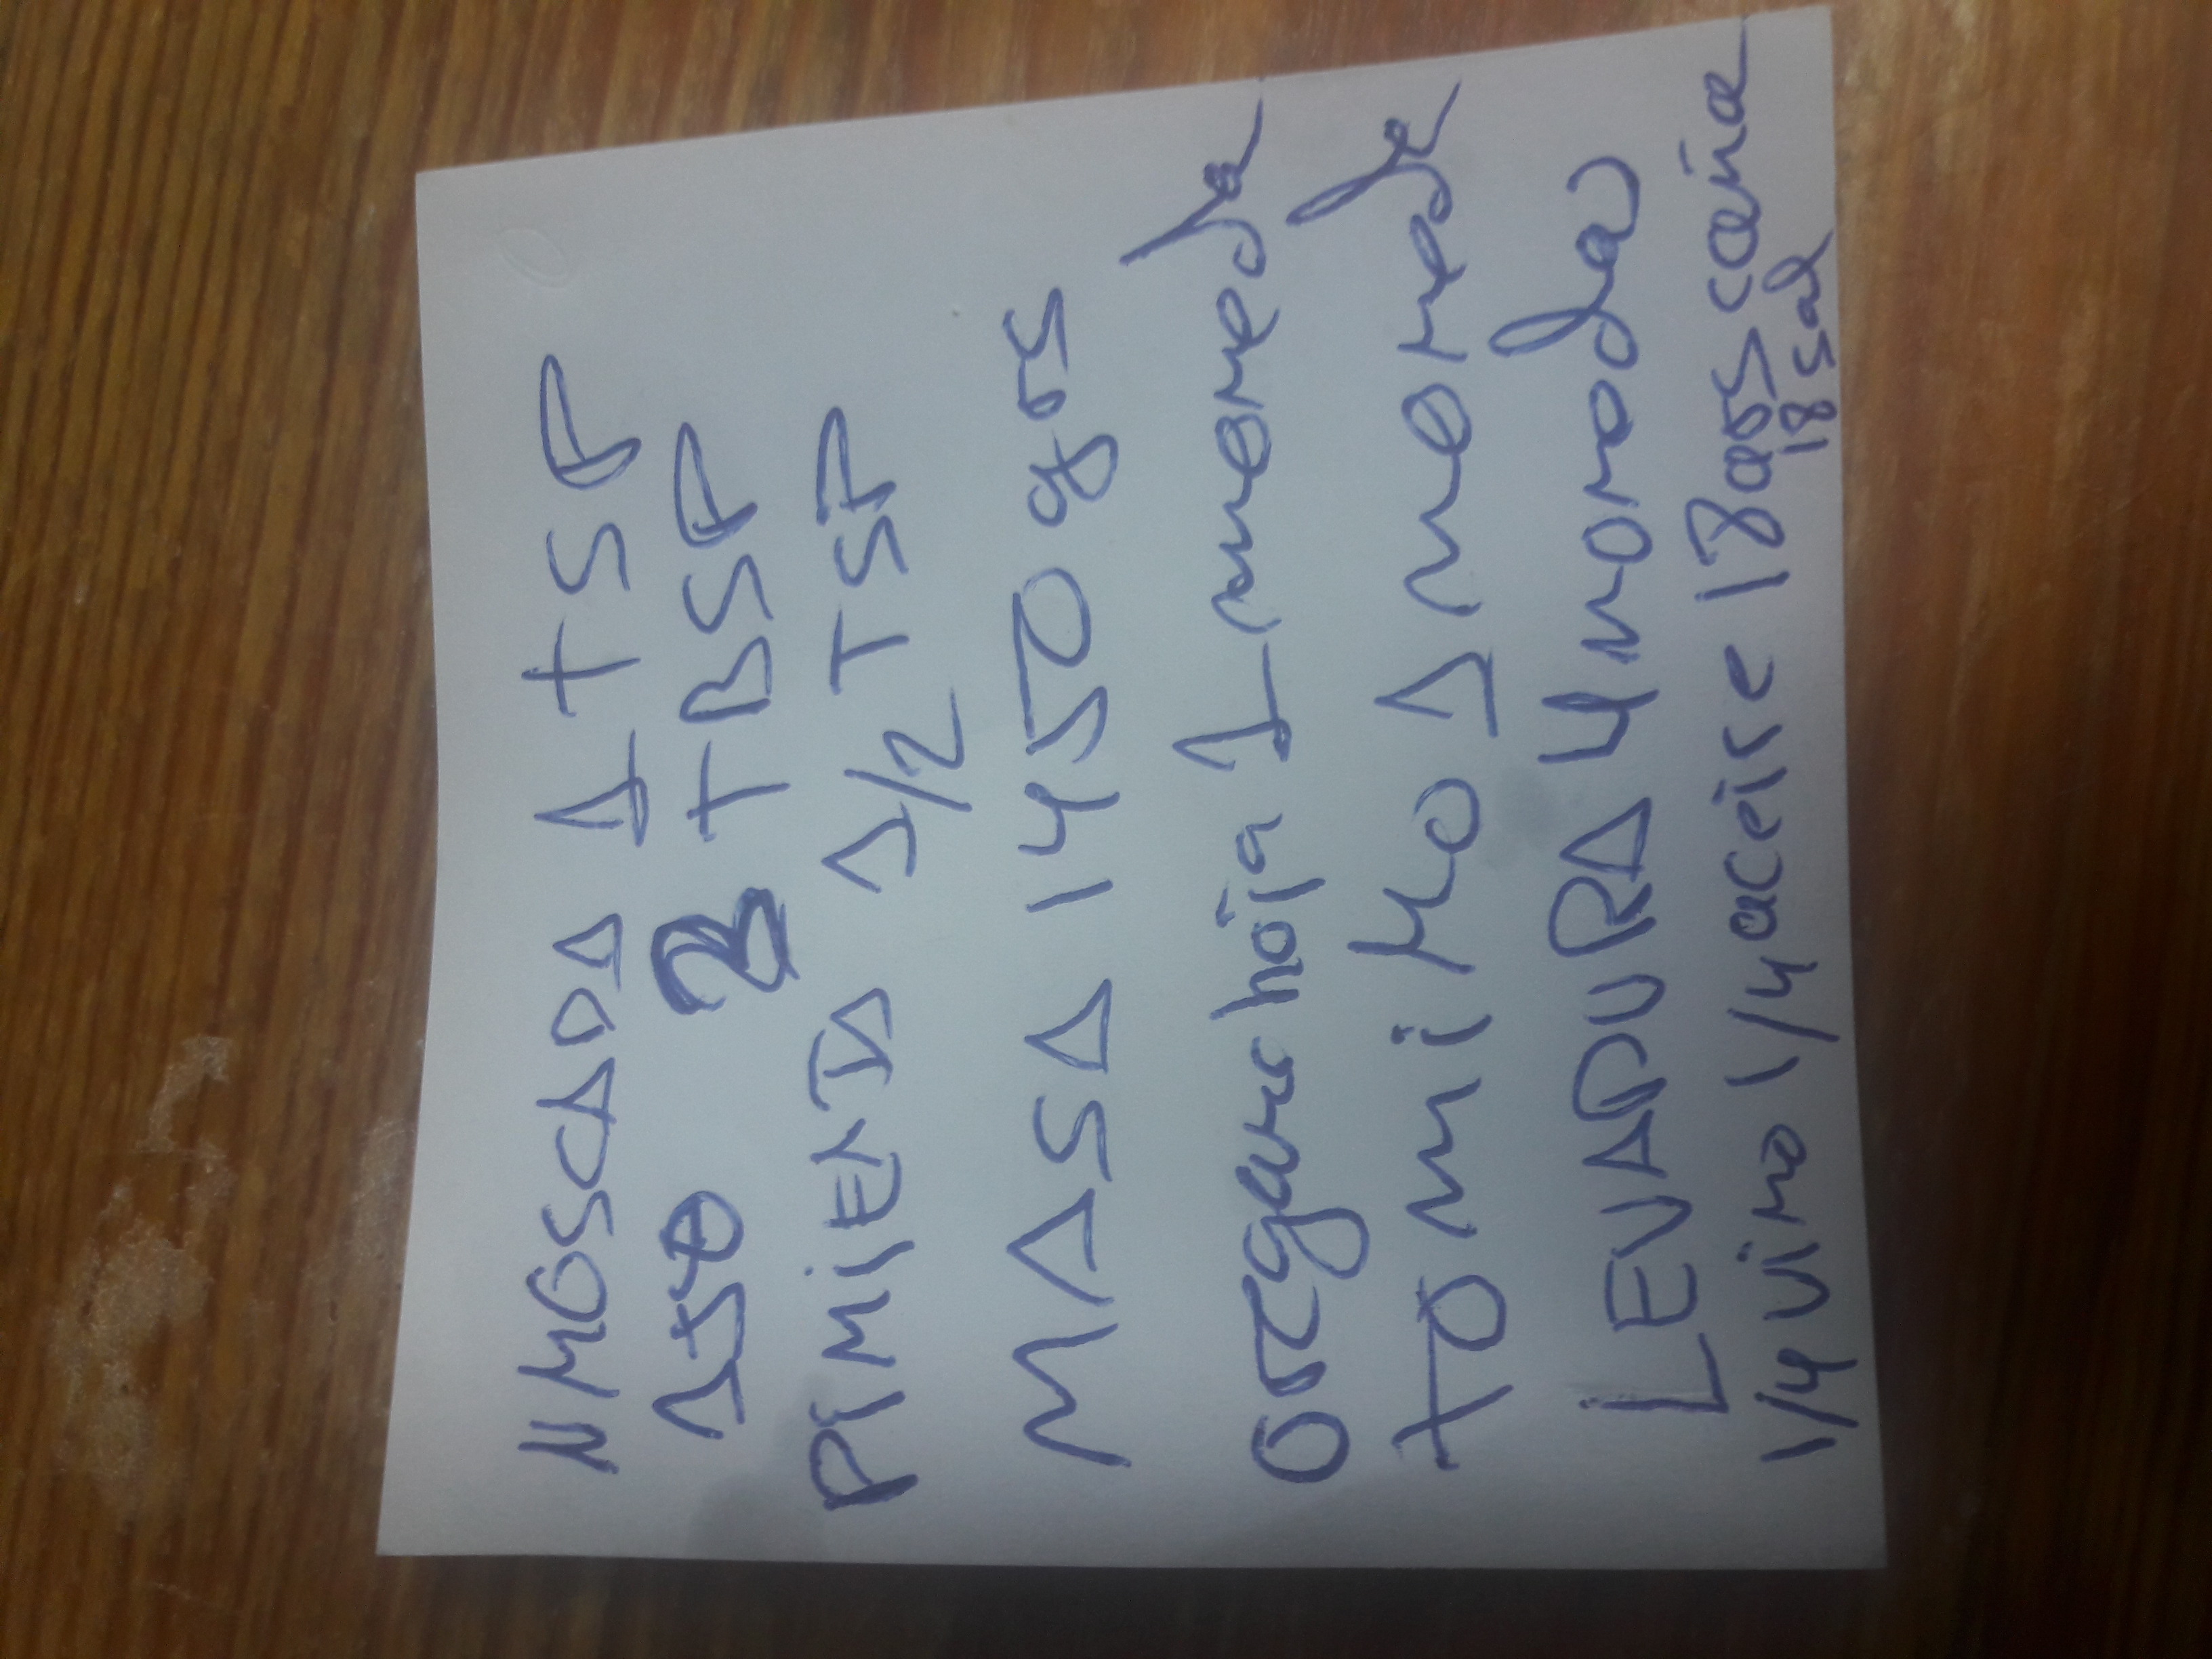 N MOSCADA 1 TSP
AJO 3 TBSP
PIMIENTA 1/2 TSP
MASA 1450 grs
1 moneda
tomiko 1 moneda
LEVADURA 4 monedas
1/4 vino 1/4 aceite 18 grs caña
18 sal